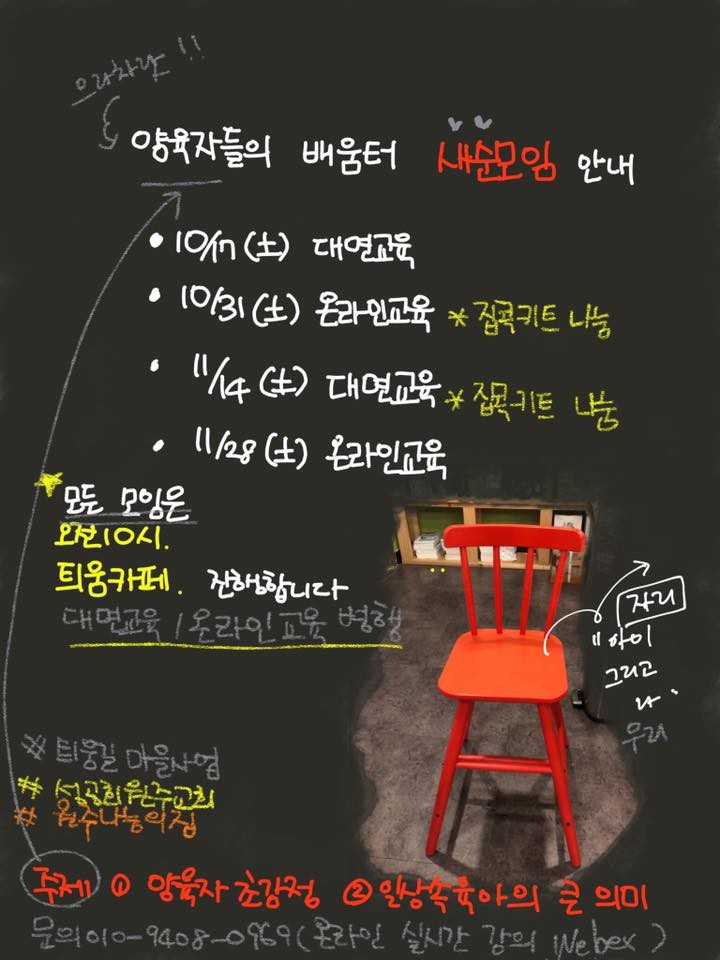 으라차랏!!
양육자들의 배움터 새순모임 안내
• 10/17 (土) 대면교육
• 10/31 (土) 온라인교육 * 집콕키트 나눔
• 11/14 (土) 대면교육 * 집콕키트 나눔
• 11/28 (土) 온라인교육
모든 모임은
오전10시.
틔움카페. 진행합니다
대면교육 / 온라인교육 병행
자리
"아이
그리고
나"
우리
※ 틔움길 마을사업
# 성공회원주교회
# 원주나눔의집
주제 ① 양육자 초감정 ② 일상속육아의 큰 의미
문의 010-9408-0969 (온라인 실시간 강의 Webex)